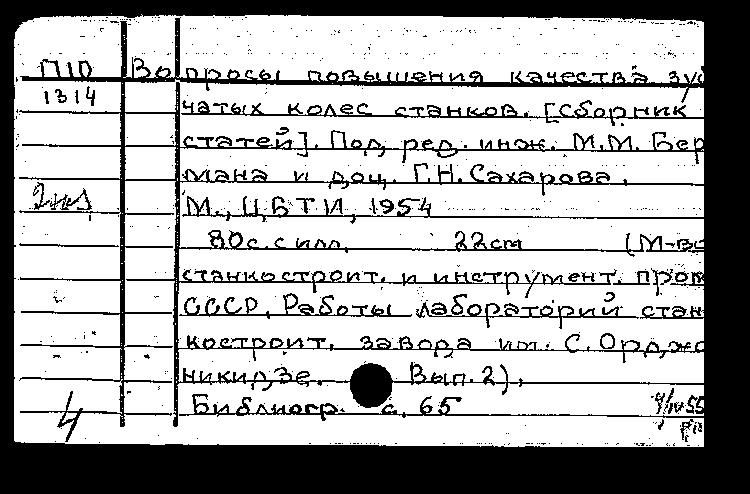 П10 Вопросы повышения качества зуб
1314 чатых колес станков. [Сборник
статей]. Под ред. инж. М.М. Бер
мана и доц. Г.Н. Сахарова.
М., ЦБТИ, 1954
80с. с илл. 22cm (М-во
станкостроит. и инструмент. пром
СССР. Работы лабораторий стан
костроит. завода им. С. Орджо
никидзе. Вып. 2).
Библиогр. с. 65
4